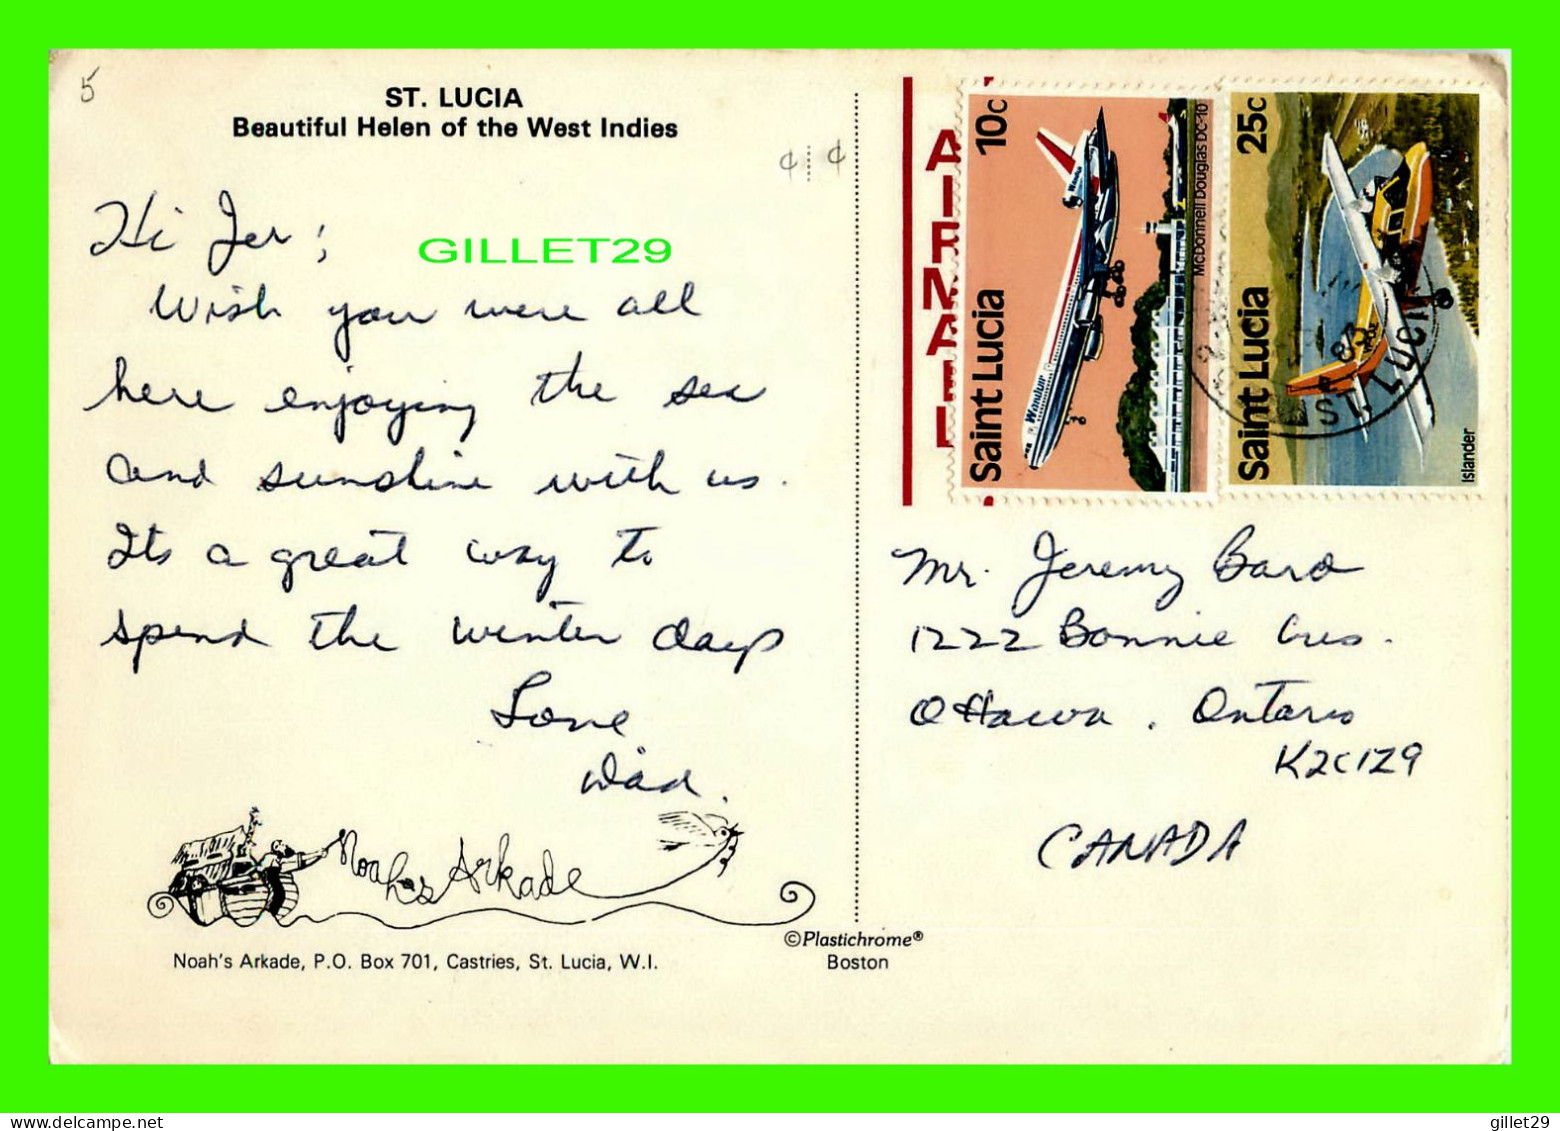 5
ST. LUCIA
Beautiful Helen of the West Indies
¢ ¢
Hi Jer;
GILLET29
Wish you were all
here enjoying the sea
and sunshine with us.
Its a great way to
spend the winter days
Love
Dad.
Noah's Arkade
Noah's Arkade, P.O. Box 701, Castries, St. Lucia, W.I.
©Plastichrome®
Boston
AIRMAIL
10c
McDonnell Douglas DC-10
Saint Lucia
Wardair
25c
Saint Lucia
Islander
ST. LU
Mr. Jeremy Bard
1222 Bonnie Cres.
Ottawa, Ontario
K2C1Z9
CANADA
gillet29